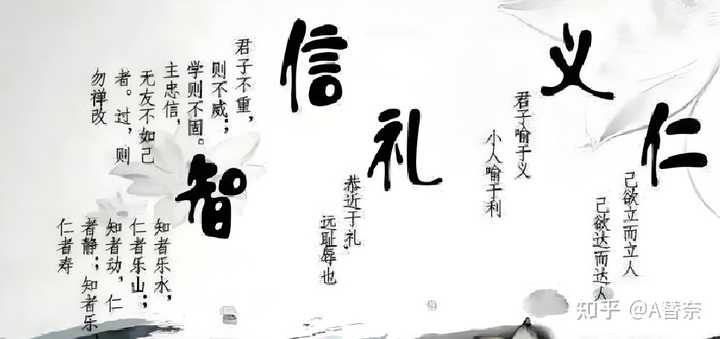 仁
己欲立而立人
己欲达而达人
义
君子喻于义
小人喻于利
礼
恭近于礼
远耻辱也
信
君子不重，
则不威；，
学则不固。
主忠信，
无友不如己
者。过，则
勿禅改
智
知者乐水，
仁者乐山；
知者动，仁
者静；知者乐，
仁者寿
知乎 @A替奈